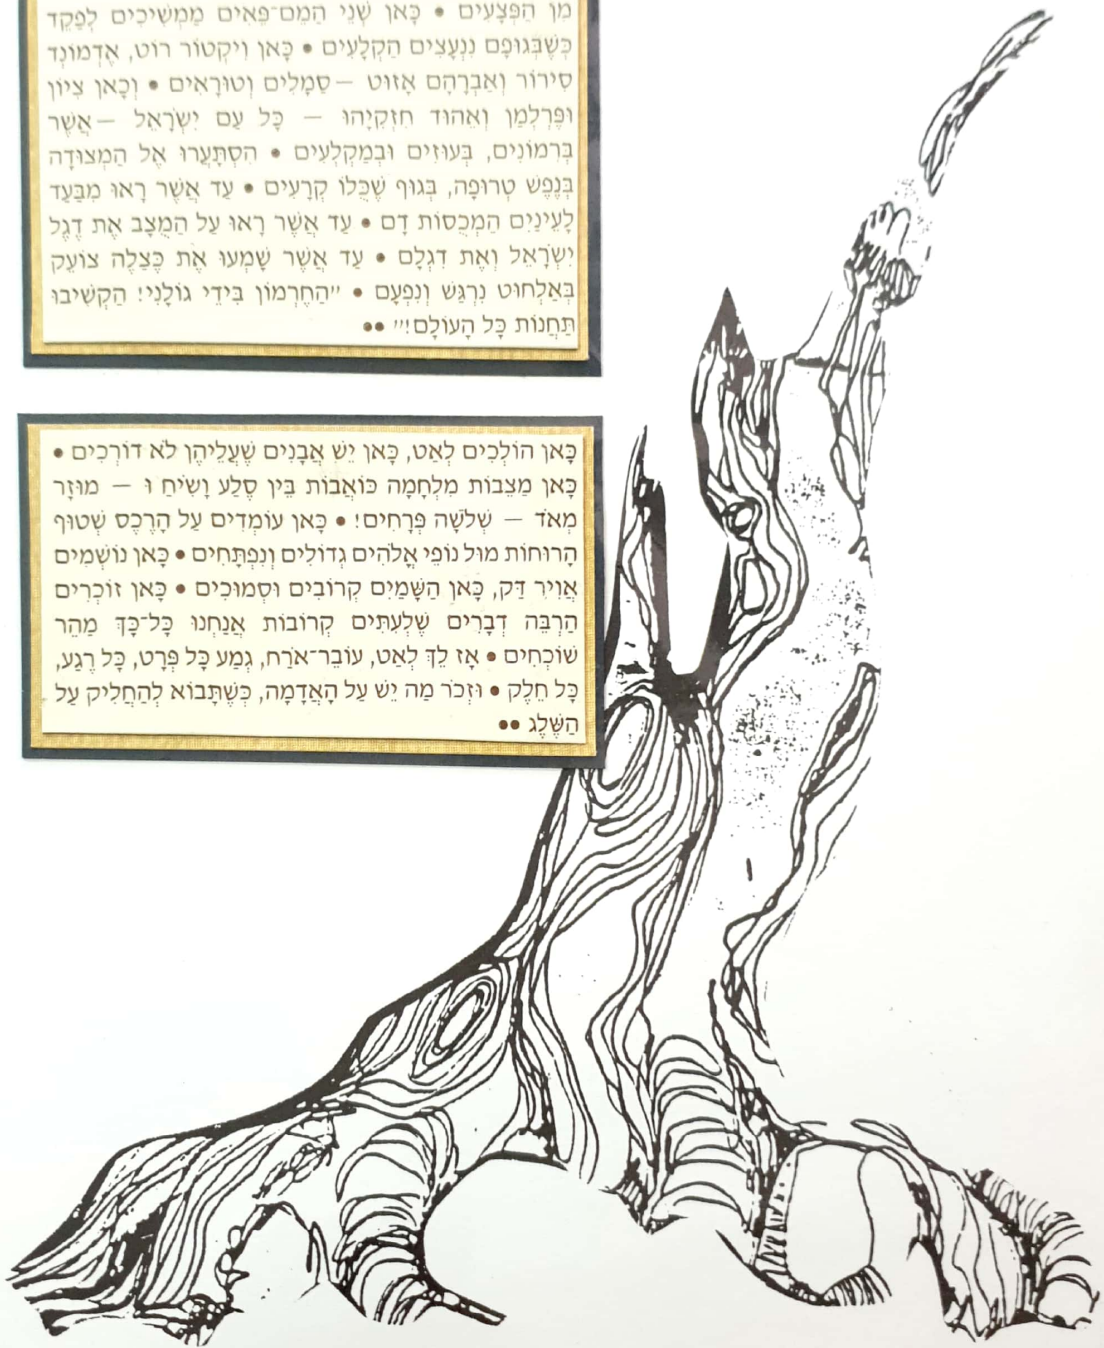 מִן הַפְּצָעִים • כָּאן שְׁנֵי הַמֵּם־פֵּאִים מַמְשִׁיכִים לְפַקֵּד
כְּשֶׁבְּגוּפָם נִנְעָצִים הַקְּלָעִים • כָּאן וִיקְטוֹר רוֹט, אֶדְמוֹנְד
סִירוֹר וְאַבְרָהָם אָזוּט – סַמָּלִים וְטוּרָאִים • וְכָאן צִיּוֹן
וּפֶּרְלְמַן וְאֵהוּד חִזְקִיָּהוּ – כָּל עַם יִשְׂרָאֵל – אֲשֶׁר
בְּרִמּוֹנִים, בְּעוּזִים וּבְמַקְלְעִים • הִסְתָּעֲרוּ אֶל הַמְּצוּדָה
בְּנֶפֶשׁ טְרוּפָה, בְּגוּף שֶׁכֻּלּוֹ קְרָעִים • עַד אֲשֶׁר רָאוּ מִבַּעַד
לָעֵינַיִם הַמְכֻסּוֹת דָּם • עַד אֲשֶׁר רָאוּ עַל הַמֻּצָּב אֶת דֶּגֶל
יִשְׂרָאֵל וְאֶת דִּגְלָם • עַד אֲשֶׁר שָׁמְעוּ אֶת כְּצַלֶה צוֹעֵק
בְּאַלְחוּט נִרְגָּשׁ וְנִפְעָם • ״הַחֶרְמוֹן בִּידֵי גּוֹלָנִי! הַקְשִׁיבוּ
תַּחֲנוֹת כָּל הָעוֹלָם!״ ••
כָּאן הוֹלְכִים לְאַט, כָּאן יֵשׁ אֲבָנִים שֶׁעֲלֵיהֶן לֹא דּוֹרְכִים •
כָּאן מַצֵּבוֹת מִלְחָמָה כּוֹאֲבוֹת בֵּין סֶלַע וָשִׂיחַ וּ – מוּזָר
מְאֹד – שְׁלֹשָׁה פְּרָחִים! • כָּאן עוֹמְדִים עַל הָרֶכֶס שְׁטוּף
הָרוּחוֹת מוּל נוֹפֵי אֱלֹהִים גְּדוֹלִים וְנִפְתָּחִים • כָּאן נוֹשְׁמִים
אֲוִיר דַּק, כָּאן הַשָּׁמַיִם קְרוֹבִים וּסְמוּכִים • כָּאן זוֹכְרִים
הַרְבֵּה דְּבָרִים שֶׁלְּעִתִּים קְרוֹבוֹת אֲנַחְנוּ כָּל־כָּךְ מַהֵר
שׁוֹכְחִים • אָז לֵךְ לְאַט, עוֹבֵר־אֹרַח, גְּמַע כָּל פְּרָט, כָּל רֶגַע,
כָּל חֵלֶק • וּזְכֹר מַה יֵּשׁ עַל הָאֲדָמָה, כְּשֶׁתָּבוֹא לְהַחֲלִיק עַל
הַשֶּׁלֶג ••